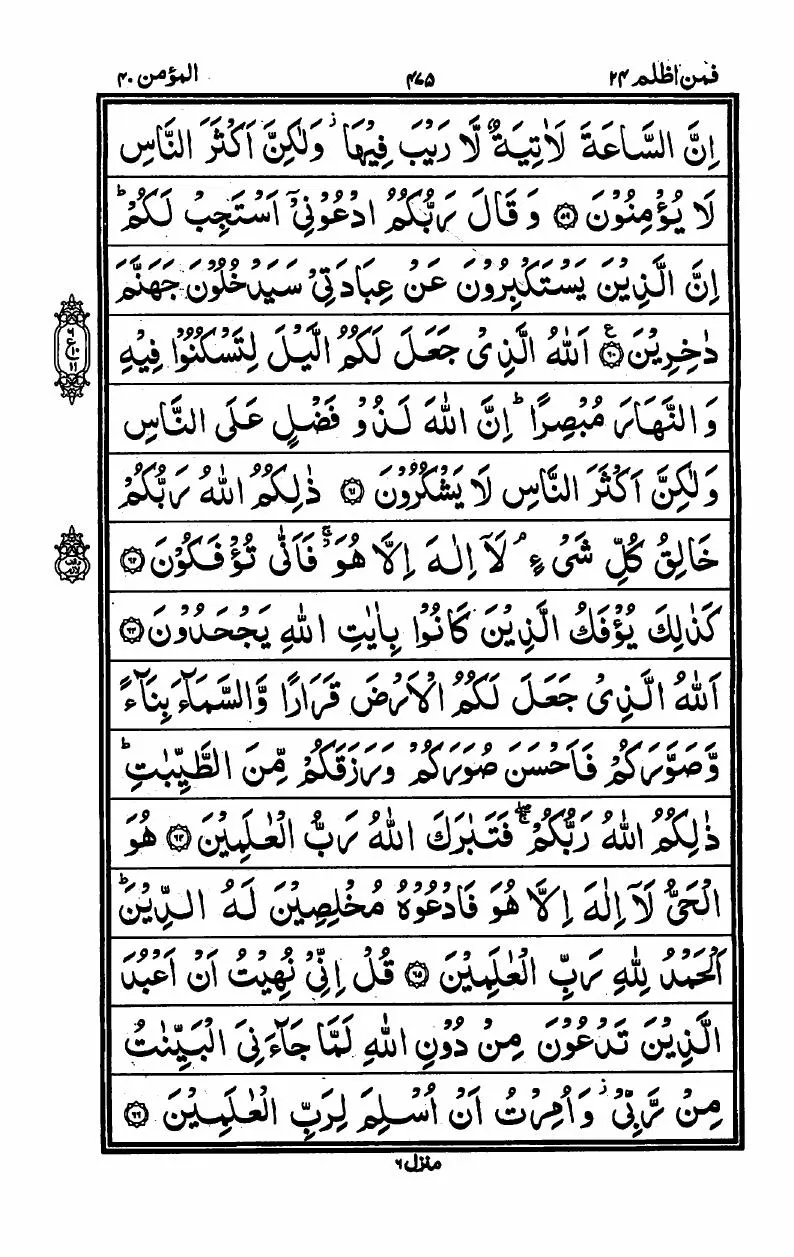 فمن اظلم ۲۴
۴۷۵
المؤمن ۴۰
اِنَّ السَّاعَةَ لَاٰتِيَةٌ لَّا رَيْبَ فِيْهَا ؗ وَلٰكِنَّ اَكْثَرَ النَّاسِ
لَا يُؤْمِنُوْنَ ۝۵۹ وَ قَالَ رَبُّكُمُ ادْعُوْنِيْۤ اَسْتَجِبْ لَكُمْ ؕ
اِنَّ الَّذِيْنَ يَسْتَكْبِرُوْنَ عَنْ عِبَادَتِيْ سَيَدْخُلُوْنَ جَهَنَّمَ
دٰخِرِيْنَ ۝۶۰ ع اَللّٰهُ الَّذِيْ جَعَلَ لَكُمُ الَّيْلَ لِتَسْكُنُوْا فِيْهِ
وَ النَّهَارَ مُبْصِرًا ؕ اِنَّ اللّٰهَ لَذُوْ فَضْلٍ عَلَى النَّاسِ
وَلٰكِنَّ اَكْثَرَ النَّاسِ لَا يَشْكُرُوْنَ ۝۶۱ ذٰلِكُمُ اللّٰهُ رَبُّكُمْ
خَالِقُ كُلِّ شَيْءٍ ۘ لَاۤ اِلٰهَ اِلَّا هُوَ ؗۚ فَاَنّٰى تُؤْفَكُوْنَ ۝۶۲
كَذٰلِكَ يُؤْفَكُ الَّذِيْنَ كَانُوْا بِاٰيٰتِ اللّٰهِ يَجْحَدُوْنَ ۝۶۳
اَللّٰهُ الَّذِيْ جَعَلَ لَكُمُ الْاَرْضَ قَرَارًا وَّالسَّمَآءَ بِنَآءً
وَّصَوَّرَكُمْ فَاَحْسَنَ صُوَرَكُمْ وَرَزَقَكُمْ مِّنَ الطَّيِّبٰتِ ؕ
ذٰلِكُمُ اللّٰهُ رَبُّكُمْ ۖۚ فَتَبٰرَكَ اللّٰهُ رَبُّ الْعٰلَمِيْنَ ۝۶۴ هُوَ
الْحَيُّ لَاۤ اِلٰهَ اِلَّا هُوَ فَادْعُوْهُ مُخْلِصِيْنَ لَهُ الدِّيْنَ ؕ
اَلْحَمْدُ لِلّٰهِ رَبِّ الْعٰلَمِيْنَ ۝۶۵ قُلْ اِنِّيْ نُهِيْتُ اَنْ اَعْبُدَ
الَّذِيْنَ تَدْعُوْنَ مِنْ دُوْنِ اللّٰهِ لَمَّا جَآءَنِيَ الْبَيِّنٰتُ
مِنْ رَّبِّيْ ؗ وَاُمِرْتُ اَنْ اُسْلِمَ لِرَبِّ الْعٰلَمِيْنَ ۝۶۶
منزل ۶